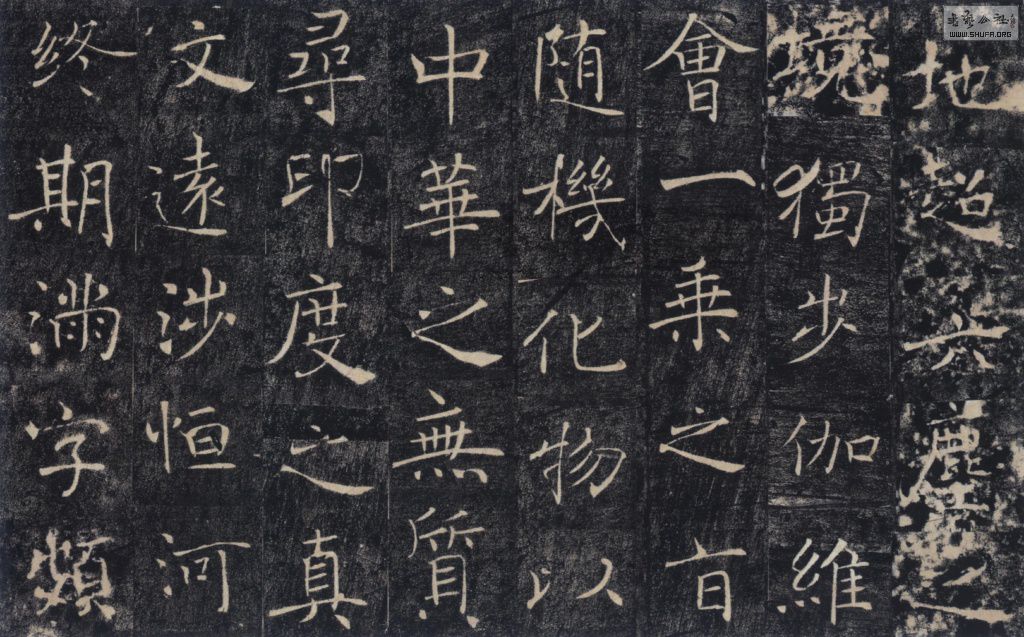 地超六塵之
境獨步伽維
會一乘之旨
隨機化物以
中華之無質
尋印度之真
文遠涉恒河
終期滿字頻
書藝公社
WWW.SHUFA.ORG